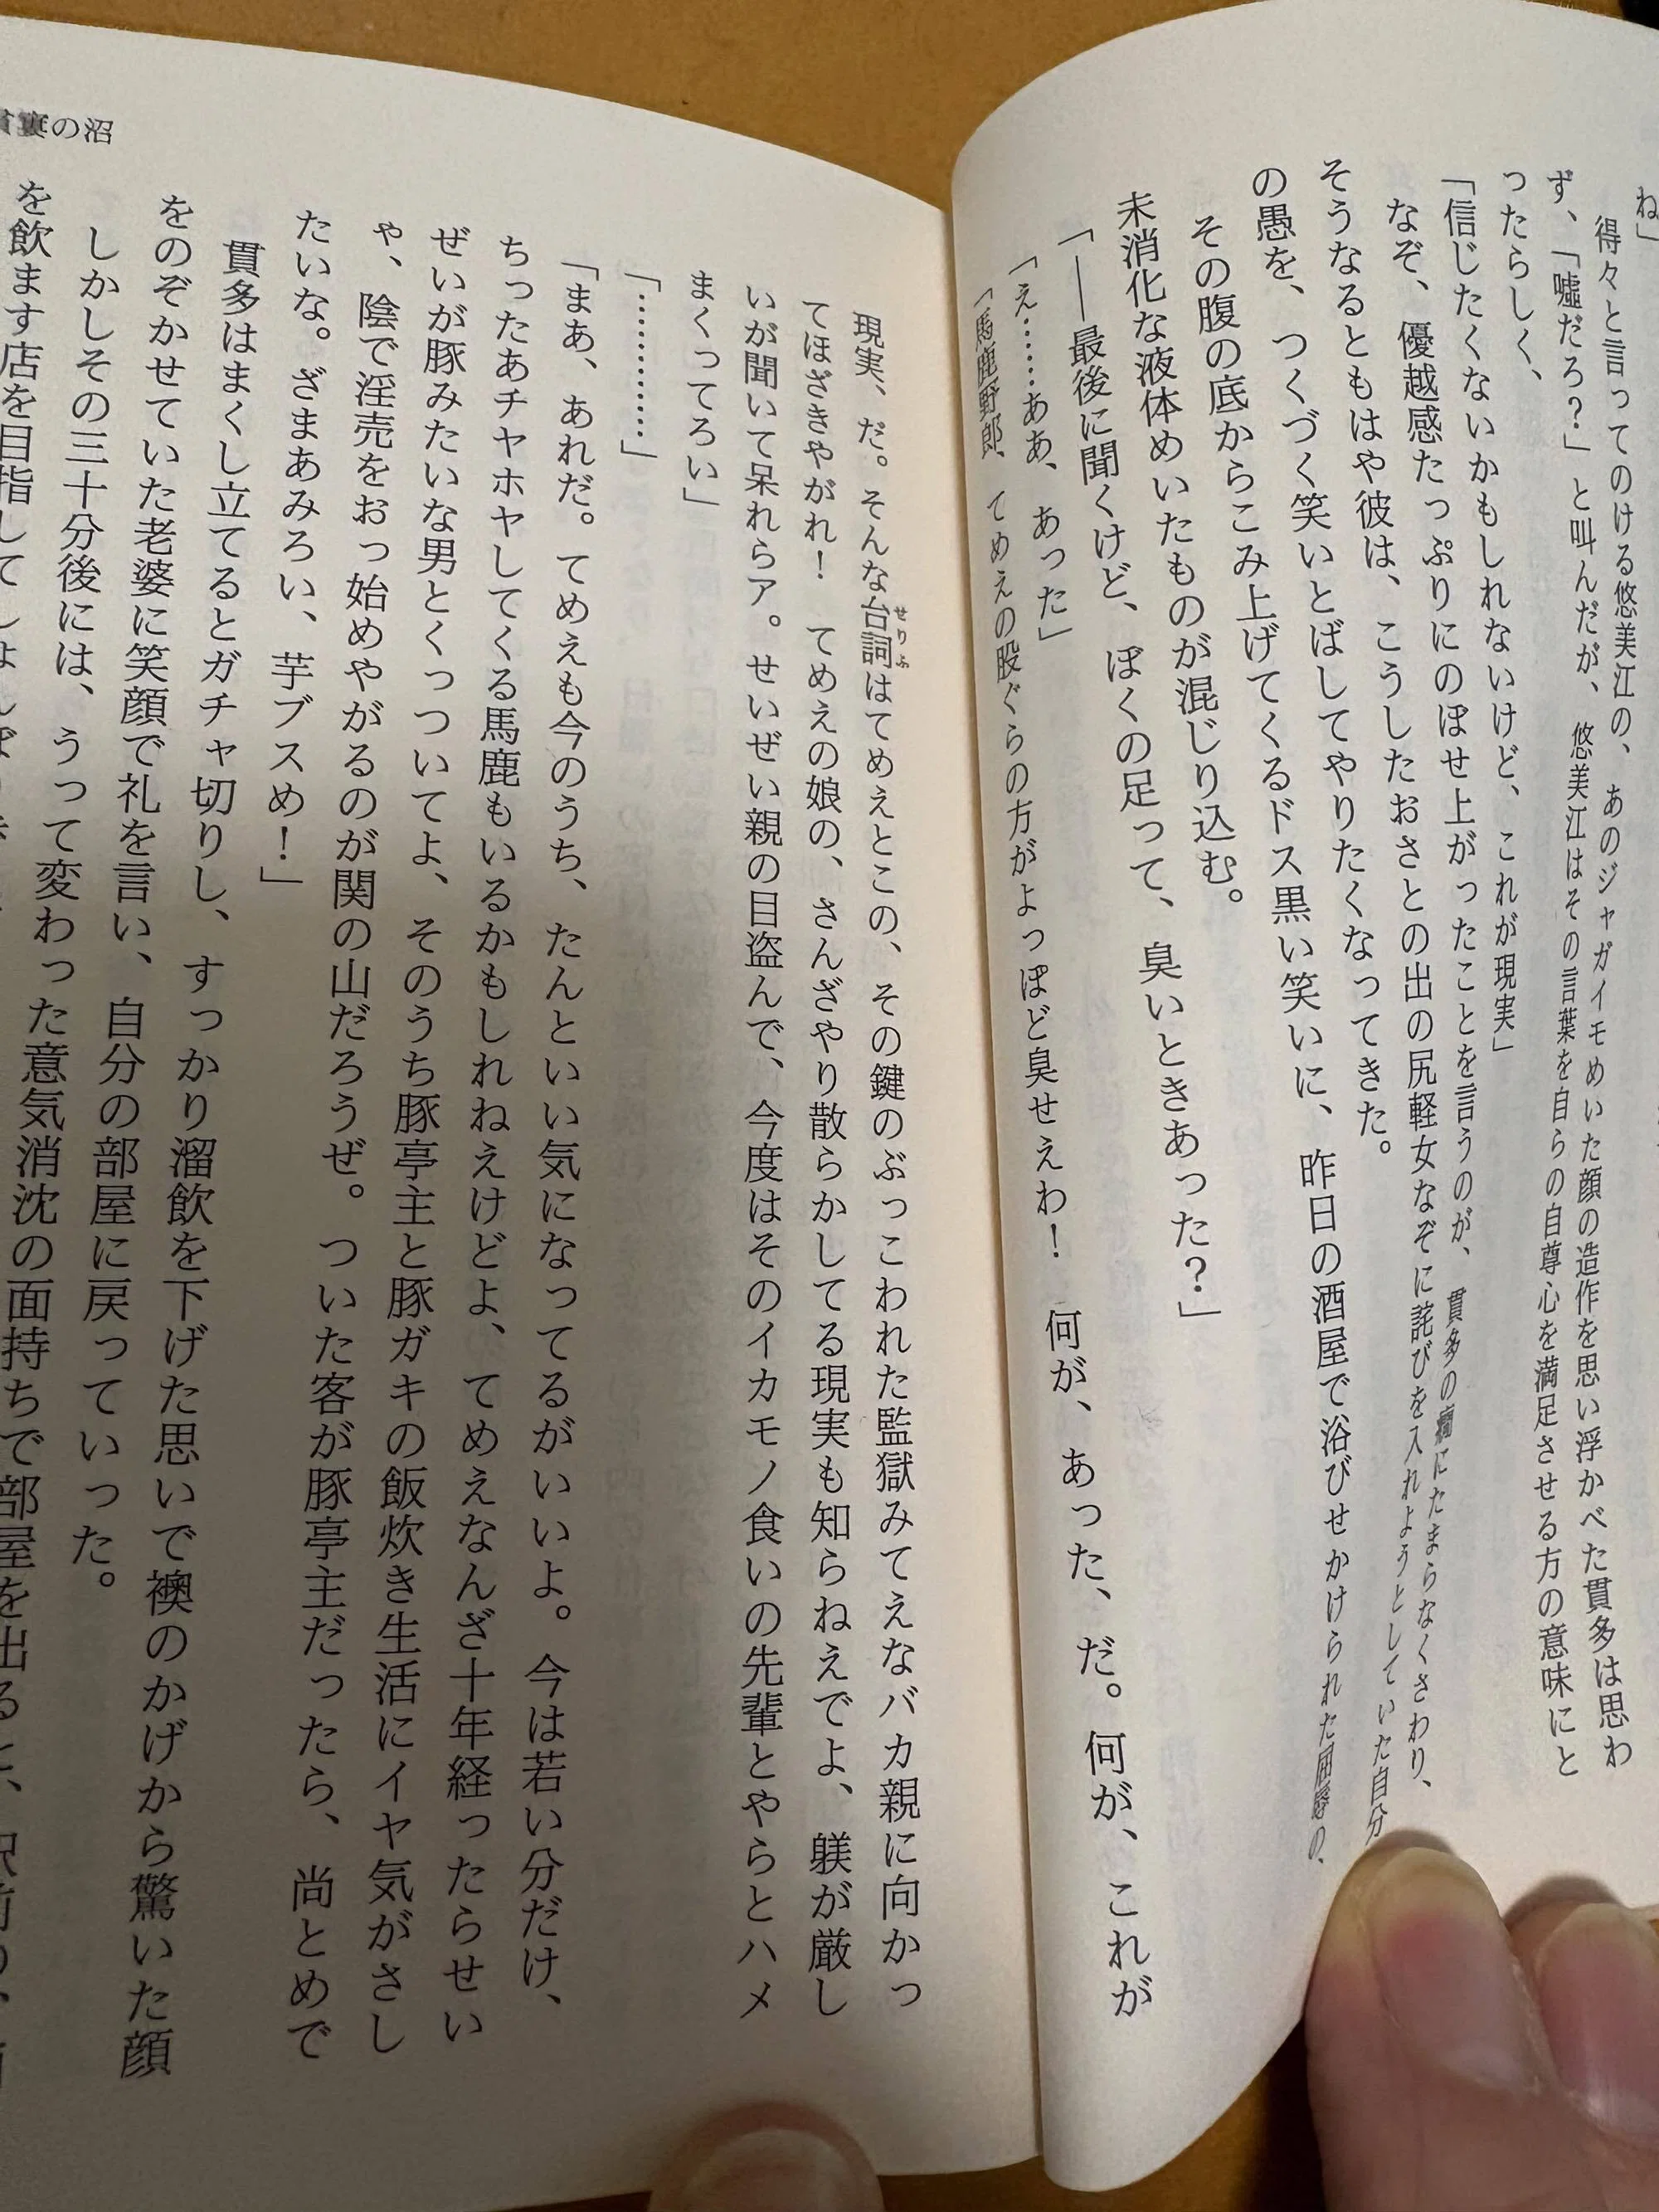 ね」
得々と言ってのける悠美江の、あのジャガイモめいた顔の造作を思い浮かべた貫多は思わ
ず、「嘘だろ？」と叫んだが、悠美江はその言葉を自らの自尊心を満足させる方の意味にと
ったらしく、
「信じたくないかもしれないけど、これが現実」
なぞ、優越感たっぷりにのぼせ上がったことを言うのが、貫多の癇にたまらなくさわり、
そうなるともはや彼は、こうしたおさとの出の尻軽女なぞに詫びを入れようとしていた自分
の愚を、つくづく笑いとばしてやりたくなってきた。
その腹の底からこみ上げてくるドス黒い笑いに、昨日の酒屋で浴びせかけられた屈辱の、
未消化な液体めいたものが混じり込む。
「――最後に聞くけど、ぼくの足って、臭いときあった？」
「え……ああ、あった」
「馬鹿野郎、てめえの股ぐらの方がよっぽど臭せえわ！　何が、あった、だ。何が、これが
現実、だ。そんな台詞はてめえとこの、その鍵のぶっこわれた監獄みてえなバカ親に向かっ
せりふ
てほざきやがれ！　てめえの娘の、さんざやり散らかしてる現実も知らねえでよ、躾が厳し
いが聞いて呆れらア。せいぜい親の目盗んで、今度はそのイカモノ食いの先輩とやらとハメ
まくってろい」
「…………」
「まあ、あれだ。てめえも今のうち、たんといい気になってるがいいよ。今は若い分だけ、
ちったあチヤホヤしてくる馬鹿もいるかもしれねえけどよ、てめえなんざ十年経ったらせい
ぜいが豚みたいな男とくっついてよ、そのうち豚亭主と豚ガキの飯炊き生活にイヤ気がさし
や、陰で淫売をおっ始めやがるのが関の山だろうぜ。ついた客が豚亭主だったら、尚とめで
たいな。ざまあみろい、芋ブスめ！」
貫多はまくし立てるとガチャ切りし、すっかり溜飲を下げた思いで襖のかげから驚いた顔
をのぞかせていた老婆に笑顔で礼を言い、自分の部屋に戻っていった。
しかしその三十分後には、うって変わった意気消沈の面持ちで部屋を出ると、
を飲ます店を目指して
の沼